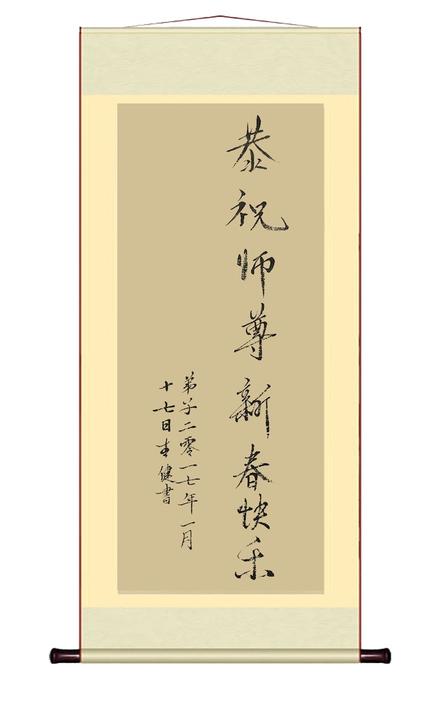 恭祝师尊新春快乐
弟子二零一七年一月
十七日健書